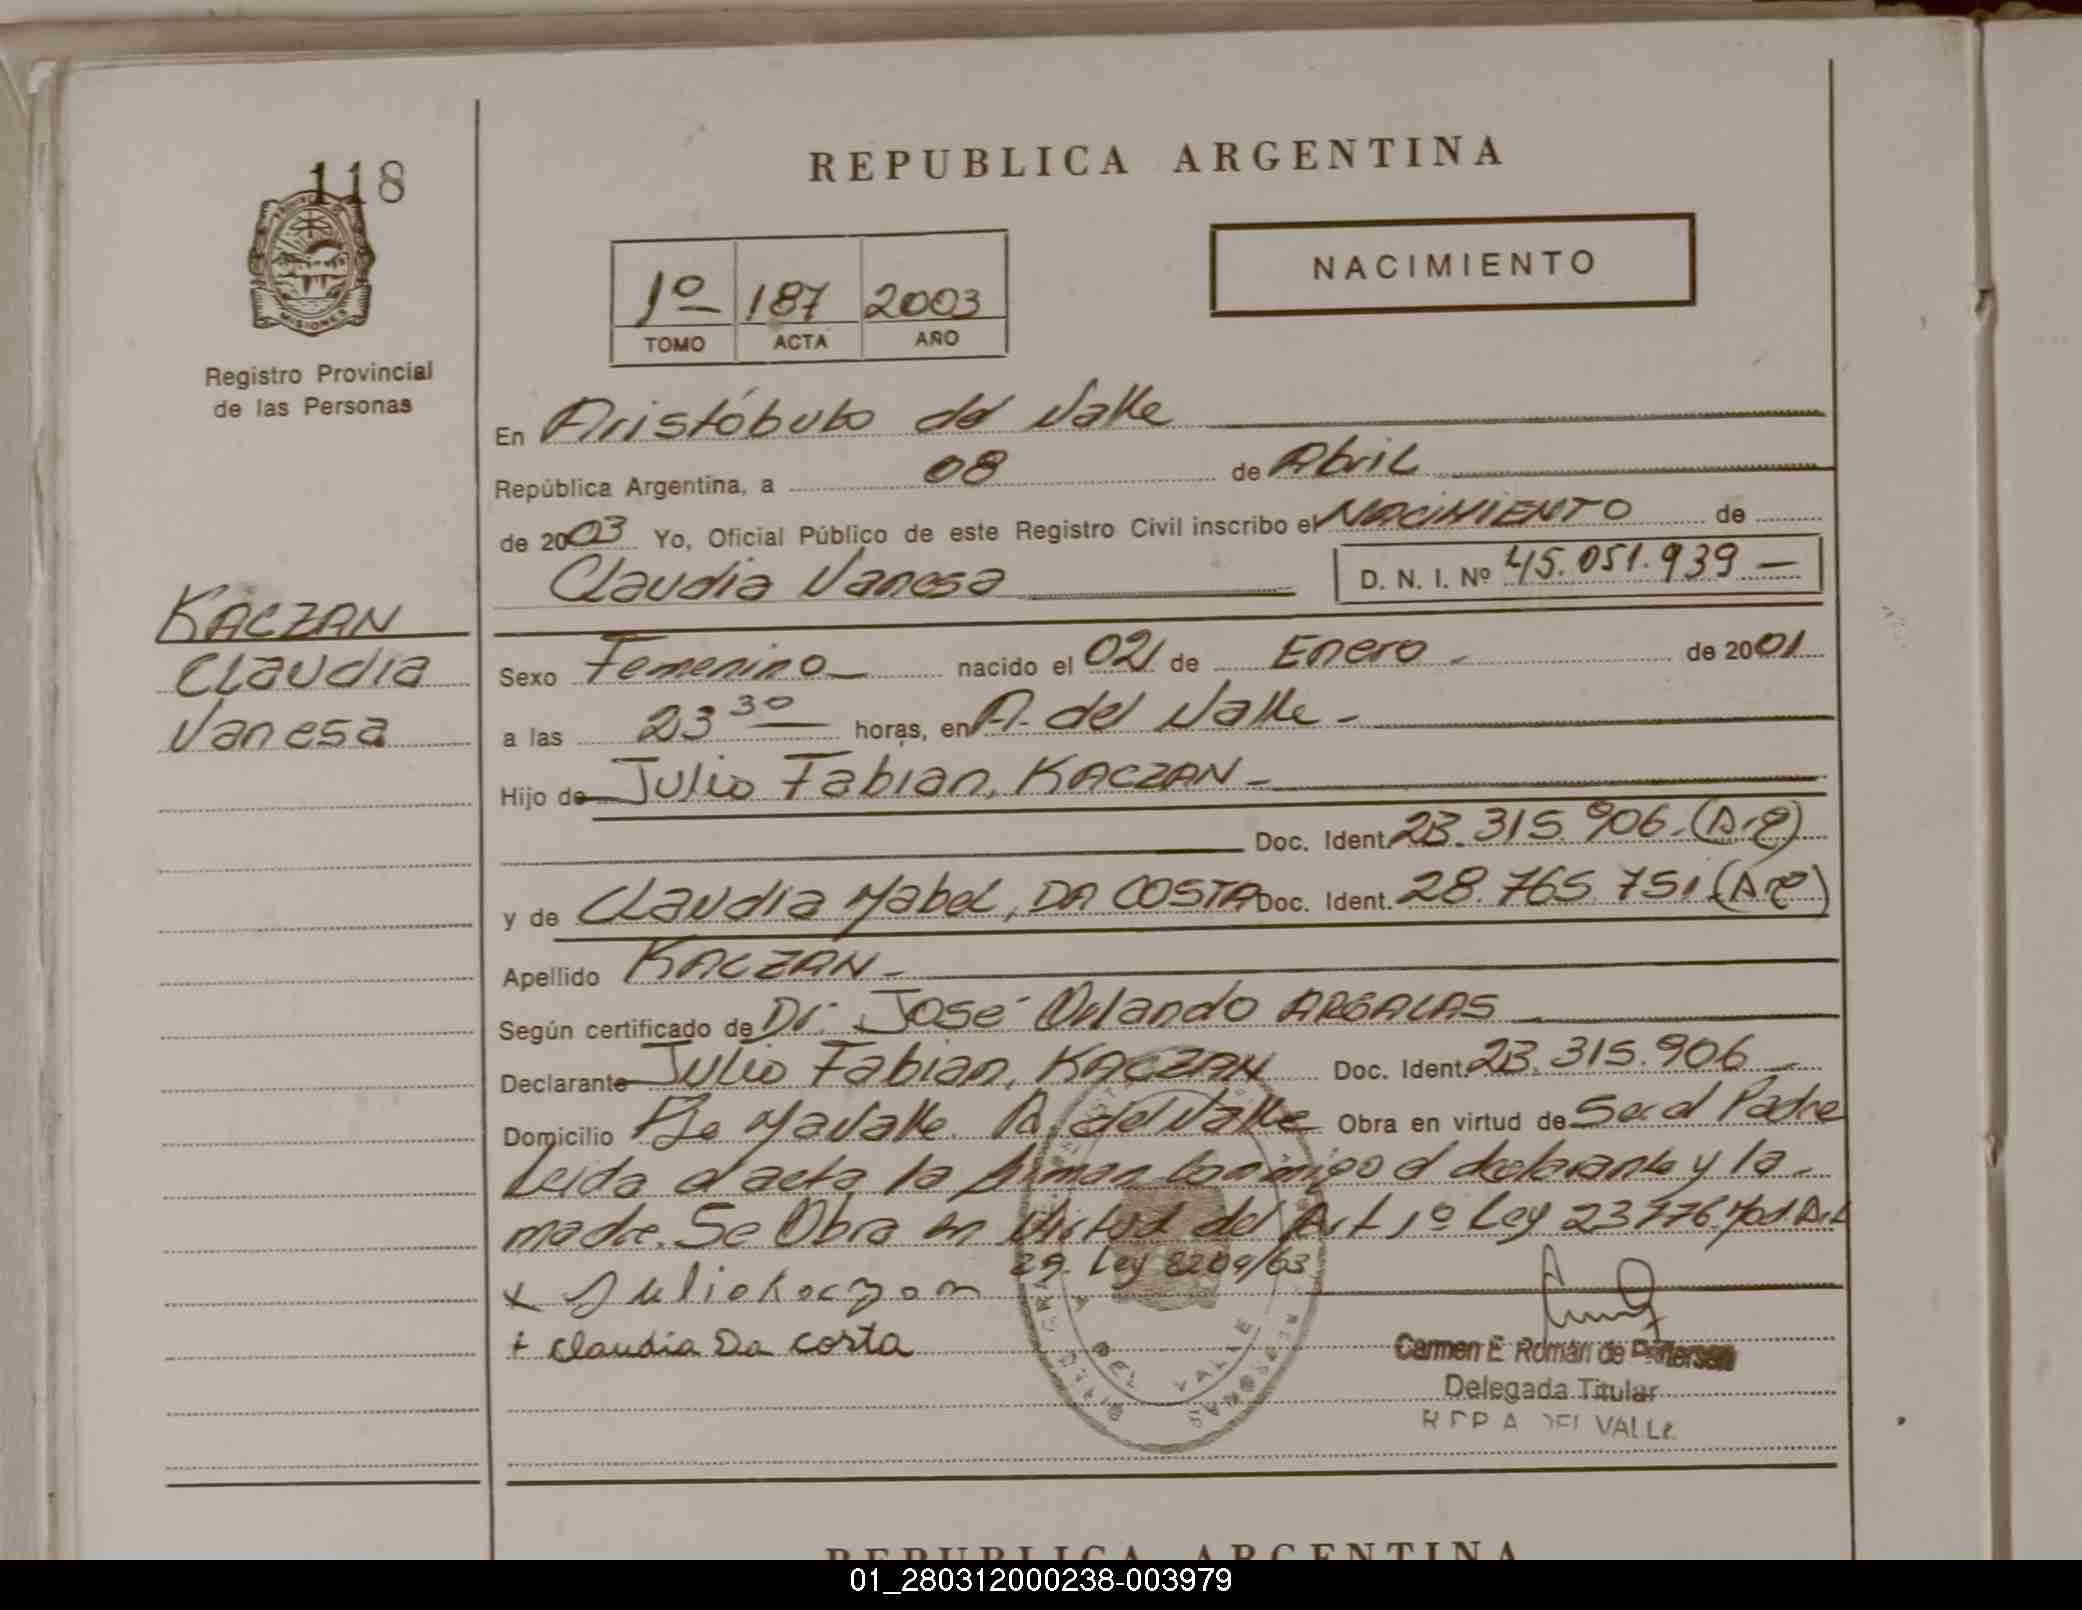 118
REPUBLICA ARGENTINA
NACIMIENTO
1º 187 2003
TOMO ACTA AÑO
MISIONES
Registro Provincial
de las Personas
En Aristóbulo del Valle
República Argentina, a 08 de Abril
de 2003 Yo, Oficial Público de este Registro Civil inscribo el NACIMIENTO de
Claudia Vanesa D. N. I. Nº 45.051.939 —
KACZAN
Claudia
Vanesa
Sexo Femenino nacido el 02 de Enero de 2001
a las 23 30 horas, en A. del Valle -
Hijo de Julio Fabian, KACZAN -
Doc. Ident. 23.315.906.
y de Claudia Mabel, DA COSTA Doc. Ident. 28.765.751
Apellido KACZAN -
Según certificado de Dr. José Orlando
Declarante Julio Fabian, KACZAN Doc. Ident. 23.315.906
Domicilio A. del Valle Obra en virtud de Ser el Padre
Leida el acta la firman conmigo el declarante y la
madre. Se Obra en Virtud del Art 1º Ley 23776
29. Ley 8209/63
x Julio Kaczan
+ Claudia Da Costa
DEL VALLE
Carmen E. Román de
Delegada Titular
DEL VALLE
REPUBLICA ARGENTINA
01_280312000238-003979